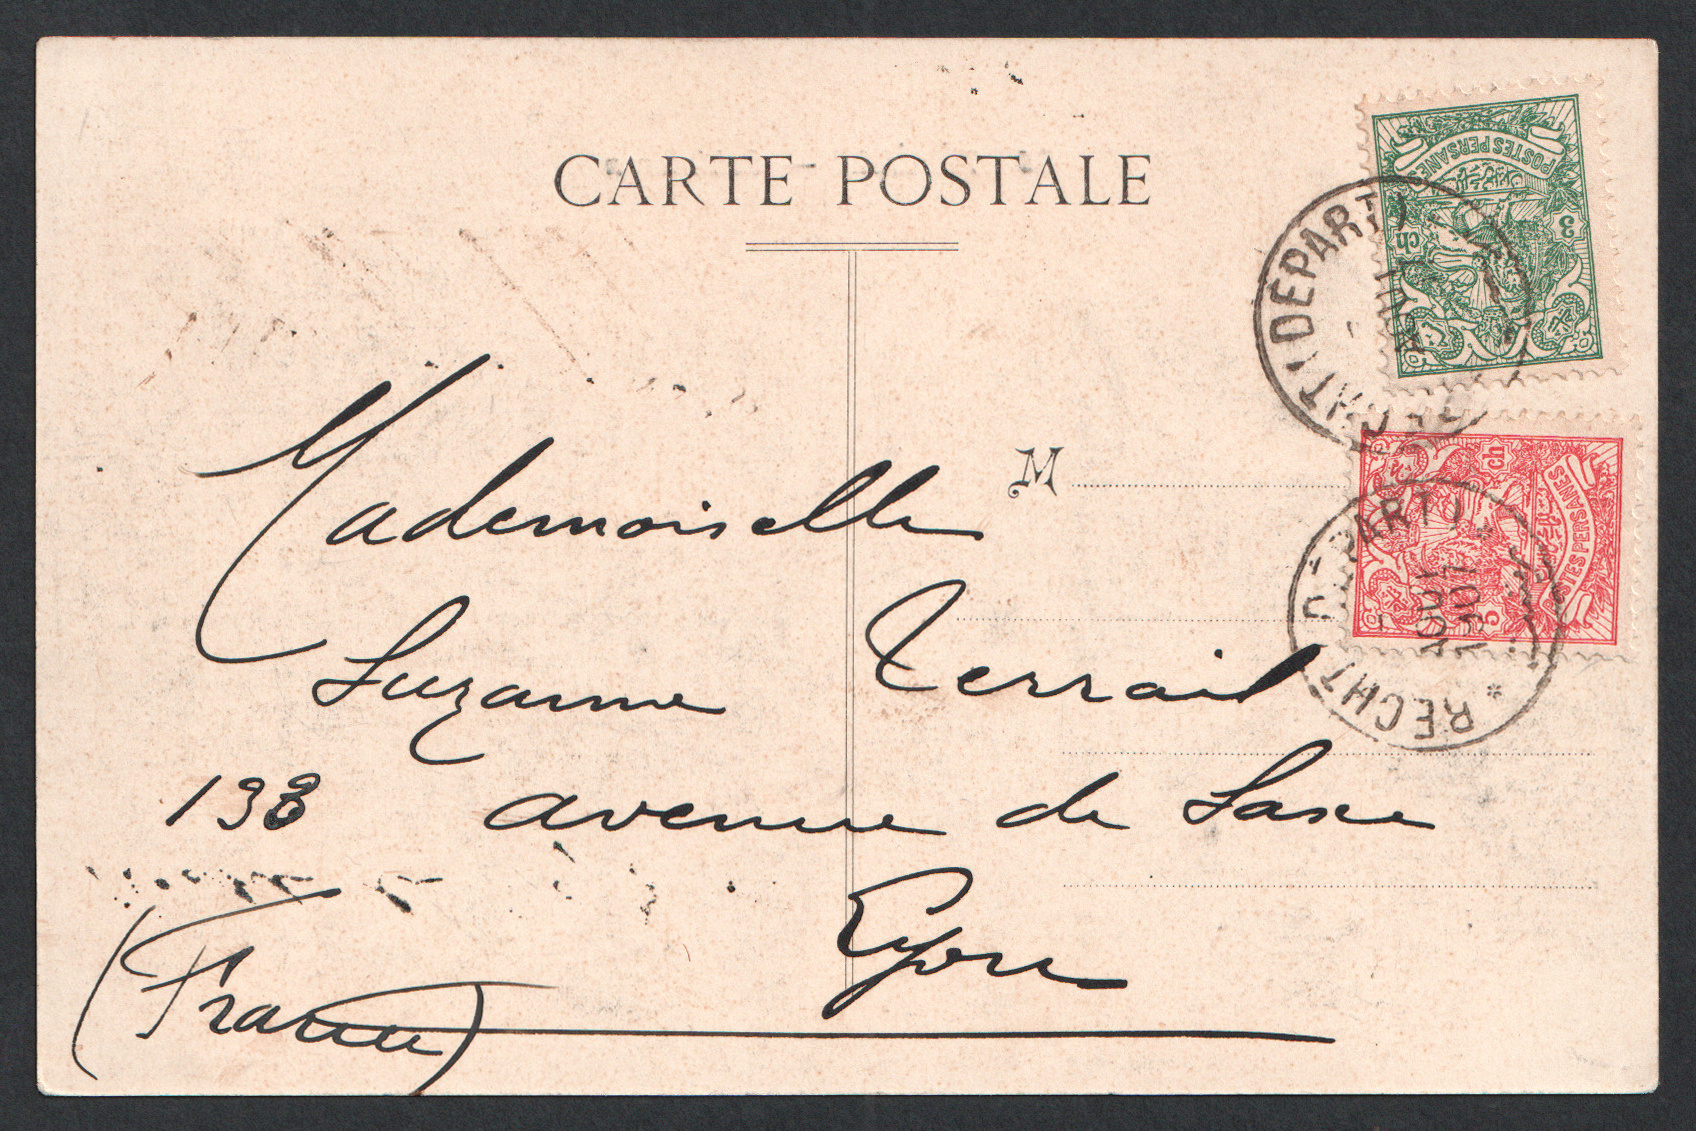 CARTE POSTALE
POSTES PERSANES
3 ch
RECHT (DÉPART)
AOUT
M
ch
POSTES PERSANES
5
RECHT (DÉPART)
AOUT
Mademoiselle
Suzanne Terrail
198 avenue de Saxe
Lyon
(France)